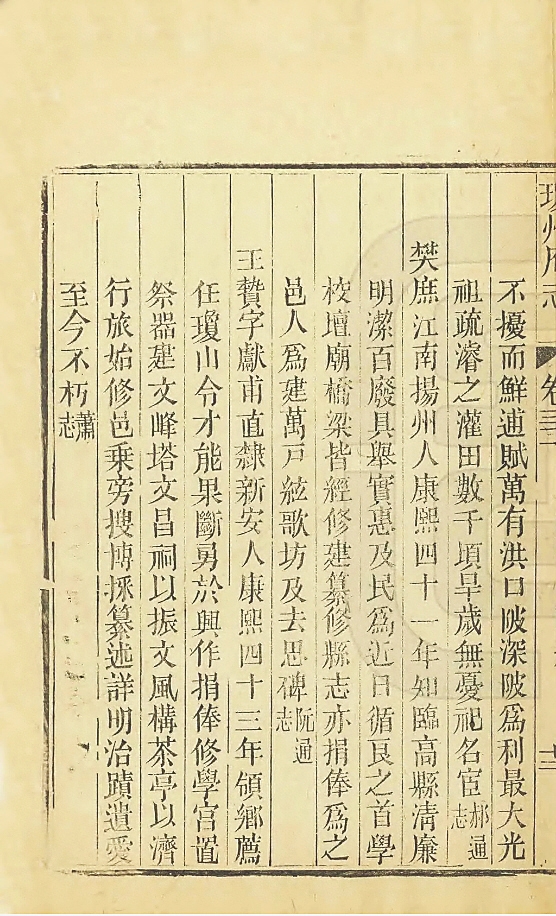 瓊州府志 卷三 十二
不擾而鮮逋賦萬有洪口陂深陂爲利最大光
祖疏濬之灌田數千頃旱歲無憂祀名宦郝通志
樊庶江南揚州人康熙四十一年知臨高縣清廉
明潔百廢具舉實惠及民爲近日循良之首學
校壇廟橋梁皆經修建纂修縣志亦捐俸爲之
邑人爲建萬戸絃歌坊及去思碑阮通志
王贄字獻甫直隸新安人康熙四十三年領鄉薦
任瓊山令才能果斷勇於興作捐俸修學宮置
祭器建文峰塔文昌祠以振文風構茶亭以濟
行旅始修邑乘旁搜博採纂述詳明治蹟遺愛
至今不朽蕭志